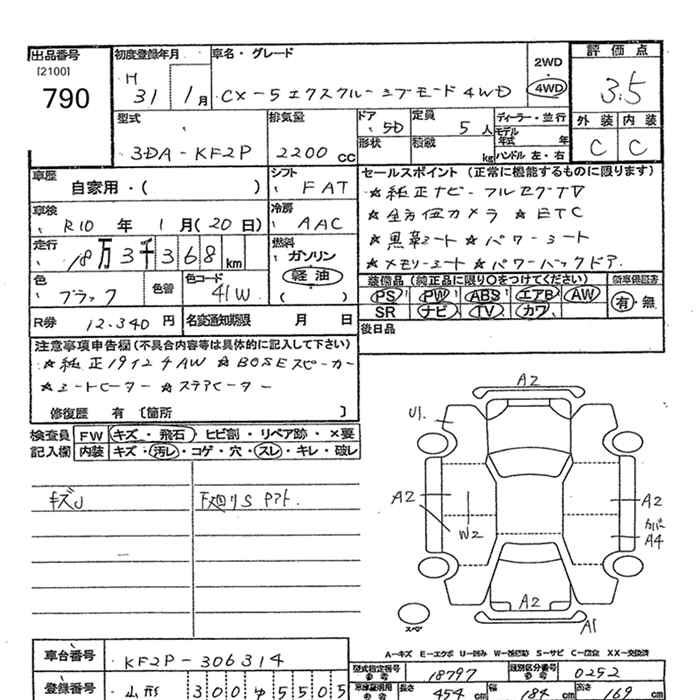 出品番号 初度登録年月 車名・グレード 2WD 評価点
[2100] H 4WD 3.5
790 31 1月 CX-5 エクスクルーシブモード 4WD
型式 排気量 ドア 定員 ディーラー・並行 外装 内装
3DA-KF2P 2200cc 5D 5人 モデル年式 年 C C
形状 積載 kg ハンドル 左・右
車歴 自家用・( ) シフト FAT セールスポイント (正常に機能するものに限ります)
☆純正ナビ-フルセグTV
車検 R10年 1月(20日) 冷房 AAC ☆全方位カメラ ☆ETC
走行 18万3千368km 燃料 ガソリン ☆黒革シート ☆パワーシート
軽油 ☆メモリーシート ☆パワーバックドア.
色 ブラック 色替 色コード 41W ( ) 装備品 (純正品に限り○をつけてください) 新車保証書
PS PW ABS エアB AW 有・無
SR ナビ TV カワ
R券 12,340円 名変通知期限 月 日 後日品
注意事項申告欄(不具合内容等は具体的に記入して下さい)
☆純正19インチAW ☆BOSEスピーカー
☆シートヒーター ☆ステアヒーター
修復歴 有 [箇所 ]
検査員 FW キズ・飛石 ヒビ割・リペア跡・×要
記入欄 内装 キズ・汚レ・コゲ・穴・スレ・キレ・破レ
キズU 下廻りS アト.
A2
U1.
A2 W2 A2
A4
A2
A1
スペア
A-キズ E-エクボ U-凹み W-補修跡 S-サビ C-腐食 XX-交換済
車台番号 KF2P-306314 型式指定番号 参考 18797 類別区分番号 参考 0252
登録番号 山形 300 ゆ 5505 長さ 454cm 幅 184cm 高さ 169cm